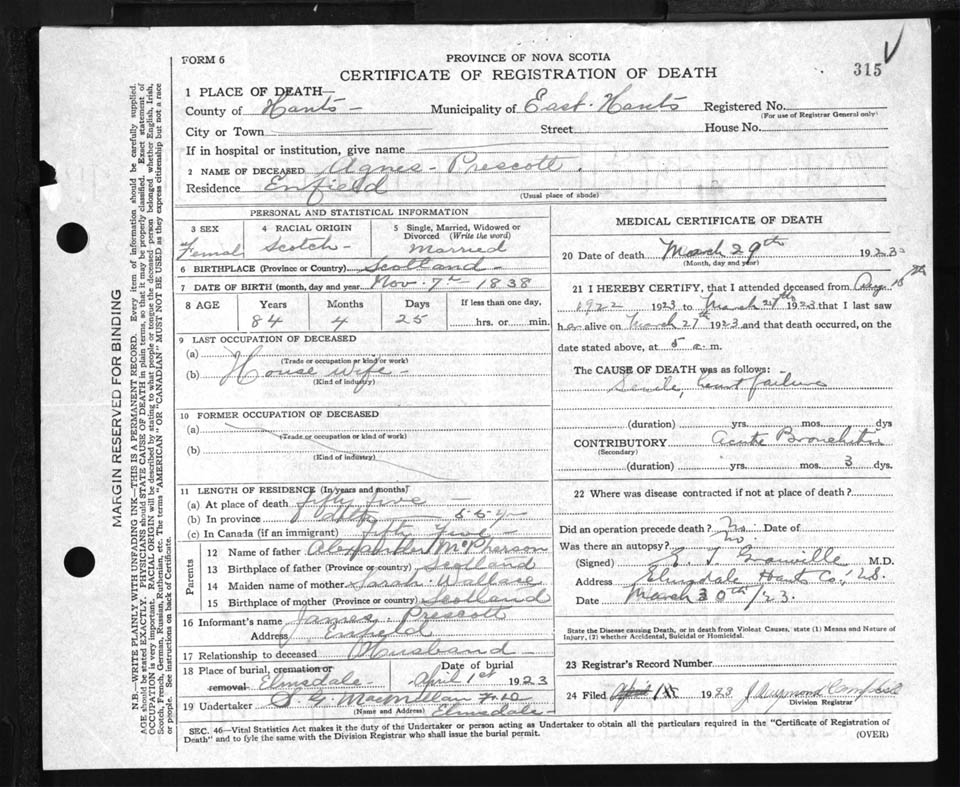 FORM 6
PROVINCE OF NOVA SCOTIA
CERTIFICATE OF REGISTRATION OF DEATH
315
1 PLACE OF DEATH—
County of Hants - Municipality of East-Hants Registered No.
(For use of Registrar General only)
City or Town Street House No.
If in hospital or institution, give name
2 NAME OF DECEASED Agnes - Prescott.
Residence Enfield
(Usual place of abode)
PERSONAL AND STATISTICAL INFORMATION
3 SEX Female
4 RACIAL ORIGIN Scotch-
5 Single, Married, Widowed or Divorced (Write the word) Married
6 BIRTHPLACE (Province or Country) Scotland -
7 DATE OF BIRTH (month, day and year) Nov. 7th - 1838
8 AGE Years Months Days If less than one day,
84 4 25 hrs. or min.
9 LAST OCCUPATION OF DECEASED
(a)
(Trade or occupation or kind or work)
(b) House wife -
(Kind of industry)
10 FORMER OCCUPATION OF DECEASED
(a)
(Trade or occupation or kind of work)
(b)
(Kind of industry)
11 LENGTH OF RESIDENCE (In years and months)
(a) At place of death fifty five -
(b) In province 55 yrs
(c) In Canada (if an immigrant) fifty five -
Parents
12 Name of father Alexander McPherson
13 Birthplace of father (Province or country) Scotland
14 Maiden name of mother Sarah Wallace
15 Birthplace of mother (Province or country) Scotland
16 Informant's name James Prescott
Address Enfield
17 Relationship to deceased Husband -
18 Place of burial, cremation or removal Elmsdale - Date of burial April 1st 1923
19 Undertaker S. G. MacMillan
(Name and Address) Elmsdale-
MEDICAL CERTIFICATE OF DEATH
20 Date of death March 29th 1923
(Month, day and year)
21 I HEREBY CERTIFY, that I attended deceased from
1922 1923 to March 27th 1923 that I last saw
her alive on March 27th 1923 and that death occurred, on the
date stated above, at 5 a.m.
The CAUSE OF DEATH was as follows:
Senile, heart failure
(duration) yrs. mos. dys
CONTRIBUTORY Acute Bronchitis
(Secondary)
(duration) yrs. mos. 3 dys.
22 Where was disease contracted if not at place of death?
Did an operation precede death? No. Date of
Was there an autopsy? No.
(Signed) M.D.
Address Elmsdale Hants Co., N.S.
Date March 30th/23.
State the Disease causing Death, or in death from Violent Causes, state (1) Means and Nature of Injury, (2) whether Accidental, Suicidal or Homicidal.
23 Registrar's Record Number
24 Filed April 1st 1923 Campbell
Division Registrar
SEC. 46—Vital Statistics Act makes it the duty of the Undertaker or person acting as Undertaker to obtain all the particulars required in the "Certificate of Registration of
Death" and to fyle the same with the Division Registrar who shall issue the burial permit.
(OVER)
MARGIN RESERVED FOR BINDING
N.B.—WRITE PLAINLY WITH UNFADING INK—THIS IS A PERMANENT RECORD. Every item of information should be carefully supplied.
AGE should be stated EXACTLY. PHYSICIANS should STATE CAUSE OF DEATH in plain terms, so that it may be properly classified. Exact statement of
OCCUPATION is very important. RACIAL ORIGIN will be described by stating to what people or tongue the deceased person belonged whether English, Irish,
Scotch, French, German, Russian, Ruthenian, etc. The terms "AMERICAN" OR "CANADIAN" MUST NOT BE USED as they express citizenship but not a race
or people. See instructions on back of Certificate.